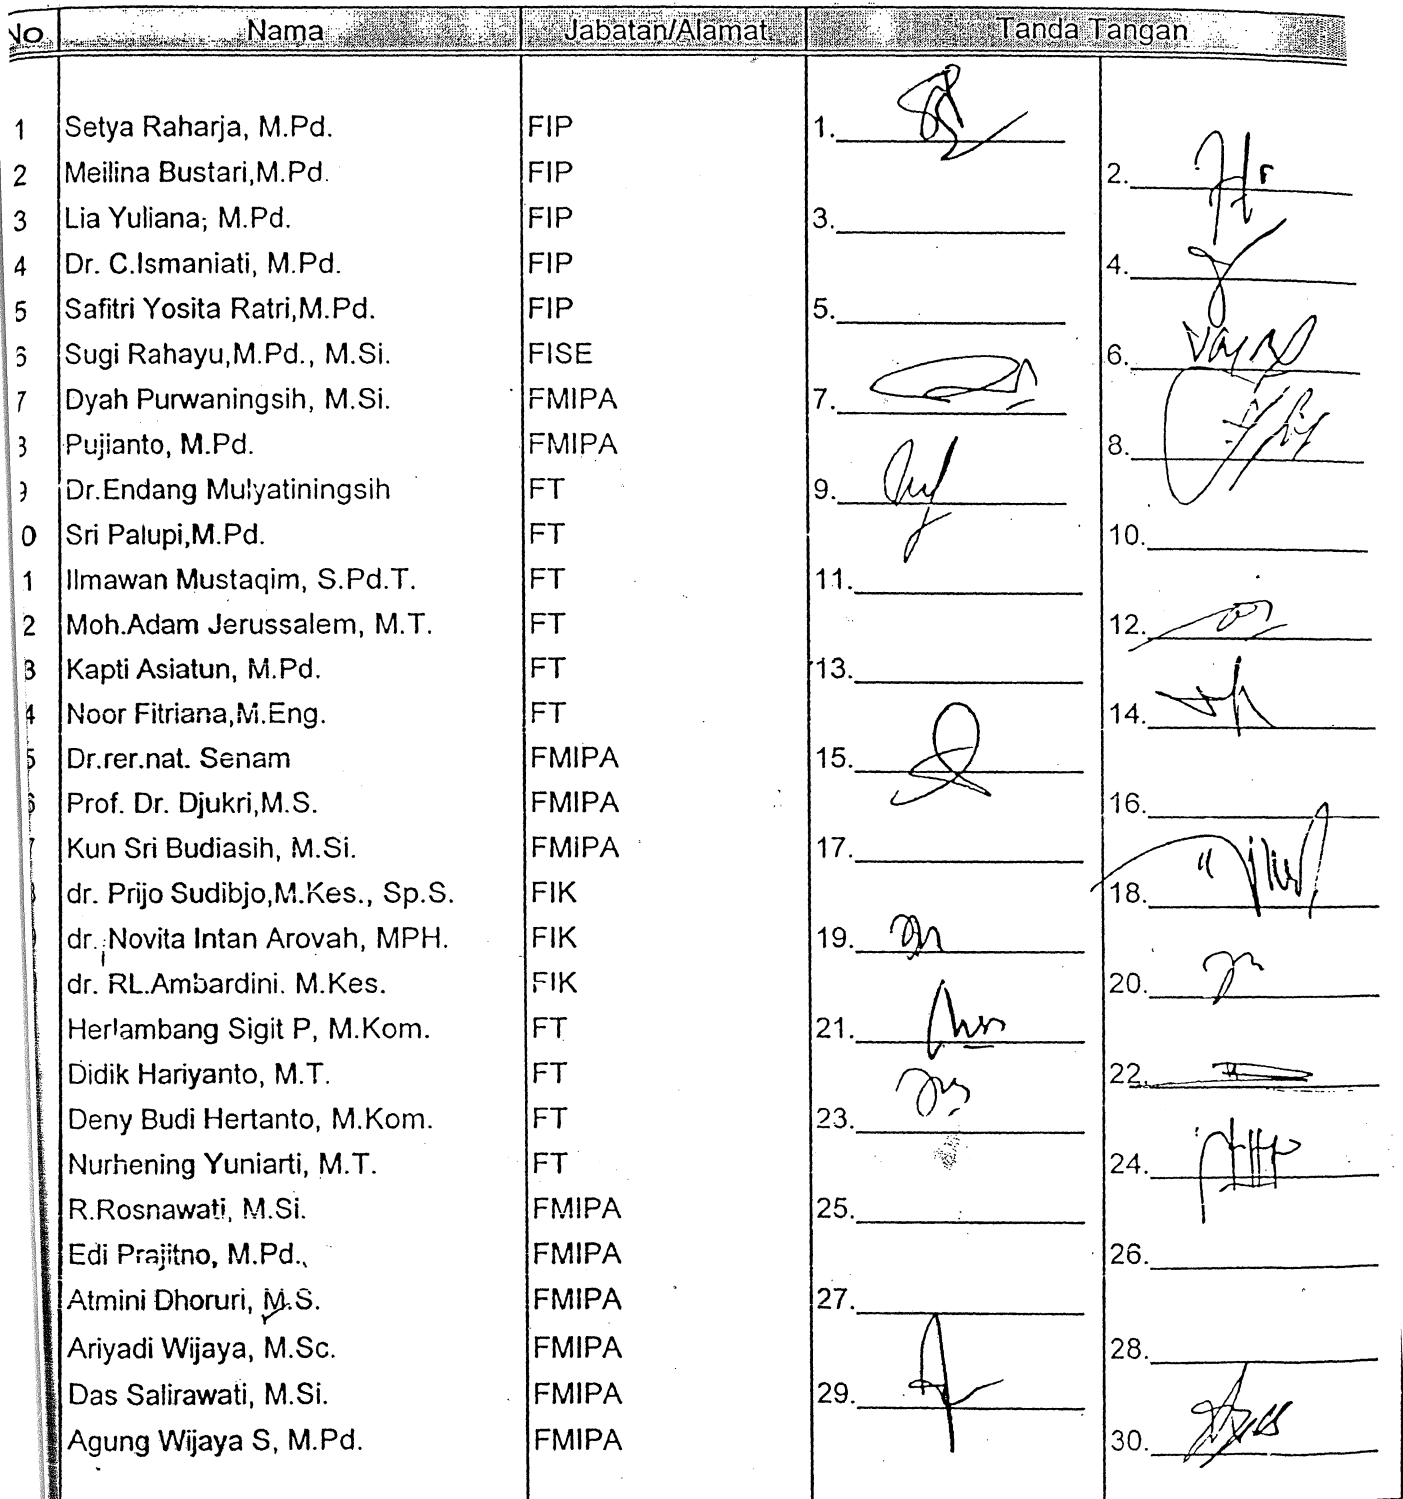 No Nama Jabatan/Alamat Tanda Tangan
1 Setya Raharja, M.Pd. FIP 1.
2 Meilina Bustari,M.Pd. FIP 2.
3 Lia Yuliana, M.Pd. FIP 3.
4 Dr. C.Ismaniati, M.Pd. FIP 4.
5 Safitri Yosita Ratri,M.Pd. FIP 5.
6 Sugi Rahayu,M.Pd., M.Si. FISE 6.
7 Dyah Purwaningsih, M.Si. FMIPA 7.
8 Pujianto, M.Pd. FMIPA 8.
9 Dr.Endang Mulyatiningsih FT 9.
0 Sri Palupi,M.Pd. FT 10.
1 Ilmawan Mustaqim, S.Pd.T. FT 11.
2 Moh.Adam Jerussalem, M.T. FT 12.
3 Kapti Asiatun, M.Pd. FT 13.
4 Noor Fitriana,M.Eng. FT 14.
5 Dr.rer.nat. Senam FMIPA 15.
6 Prof. Dr. Djukri,M.S. FMIPA 16.
7 Kun Sri Budiasih, M.Si. FMIPA 17.
dr. Prijo Sudibjo,M.Kes., Sp.S. FIK 18.
dr. Novita Intan Arovah, MPH. FIK 19.
dr. RL.Ambardini. M.Kes. FIK 20.
Herlambang Sigit P, M.Kom. FT 21.
Didik Hariyanto, M.T. FT 22.
Deny Budi Hertanto, M.Kom. FT 23.
Nurhening Yuniarti, M.T. FT 24.
R.Rosnawati, M.Si. FMIPA 25.
Edi Prajitno, M.Pd., FMIPA 26.
Atmini Dhoruri, M.S. FMIPA 27.
Ariyadi Wijaya, M.Sc. FMIPA 28.
Das Salirawati, M.Si. FMIPA 29.
Agung Wijaya S, M.Pd. FMIPA 30.